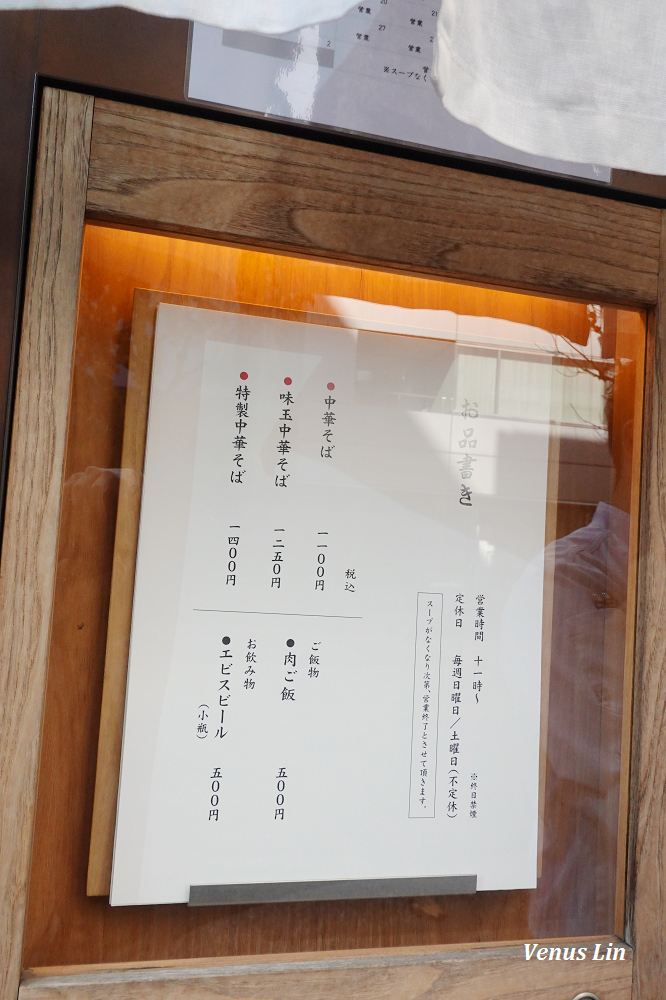 20
21
営業
営業
27
2
営業
営
2
※スープなく
お品書き
営業時間 十一時〜
※終日禁煙
定休日 毎週日曜日／土曜日(不定休)
スープがなくなり次第、営業終了とさせて頂きます。
税込
●中華そば 一一００円
●味玉中華そば 一二五０円
●特製中華そば 一四００円
ご飯物
●肉ご飯 五００円
お飲み物
●エビスビール 五００円
(小瓶)
Venus Lin